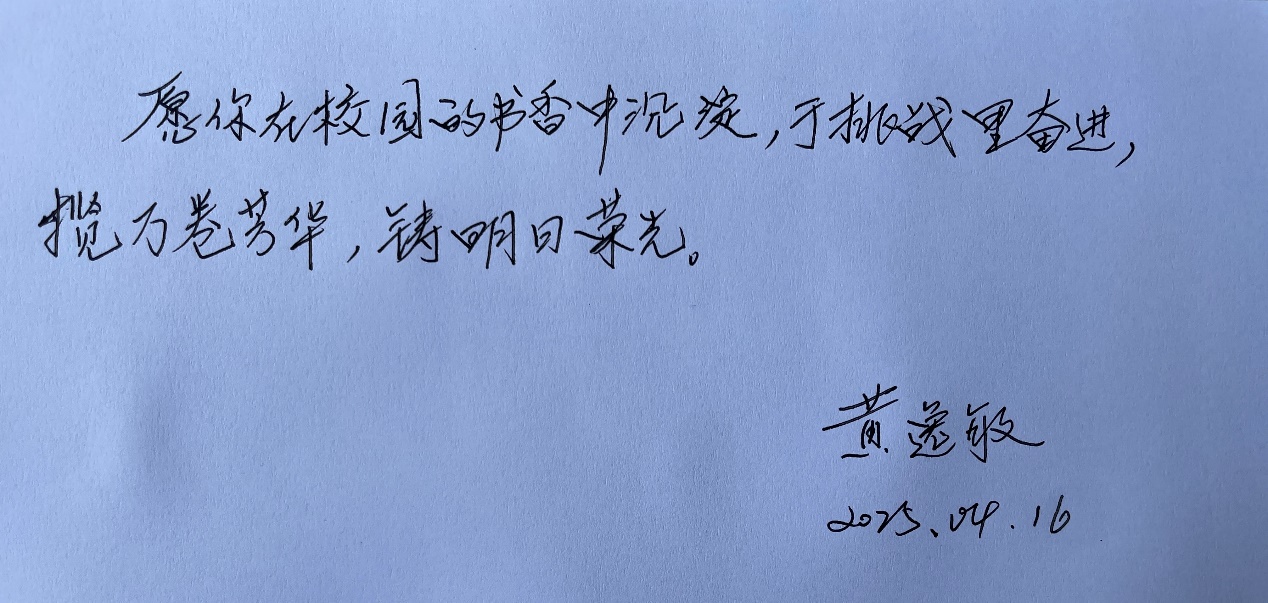 愿你在校园的书香中沉淀,于挑战里奋进,
揽万卷芳华,铸明日荣光。
黄逸敏
2025.04.16